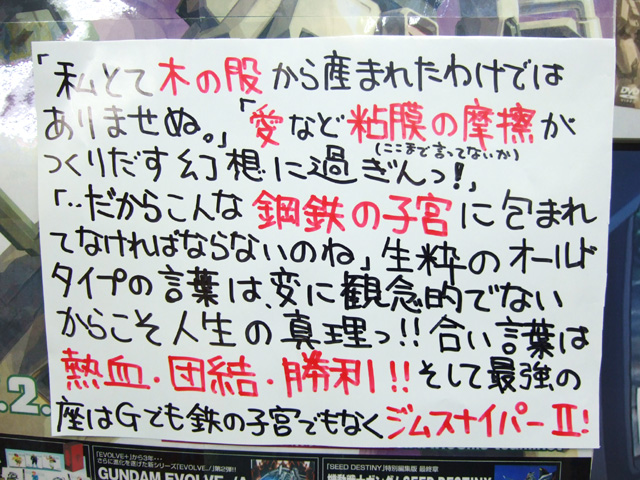 「私とて木の股から産まれたわけでは
ありませぬ。」「愛など粘膜の摩擦が
(ここまで言ってないか)
つくりだす幻想に過ぎんっ!」
「‥だからこんな鋼鉄の子宮に包まれ
てなければならないのね」生粋のオールド
タイプの言葉は、変に観念的でない
からこそ人生の真理っ!!合い言葉は
熱血・団結・勝利!!そして最強の
座はGでも鉄の子宮でもなくジムスナイパーⅡ!
.2.
「EVOLVE+」から3年…
さらに進化を遂げた新シリーズ「EVOLVE../」第2弾!!
GUNDAM EVOLVE../A
「SEED DESTINY」特別編集版 最終章
機動戦士ガンダムSEED DESTINY
DVD